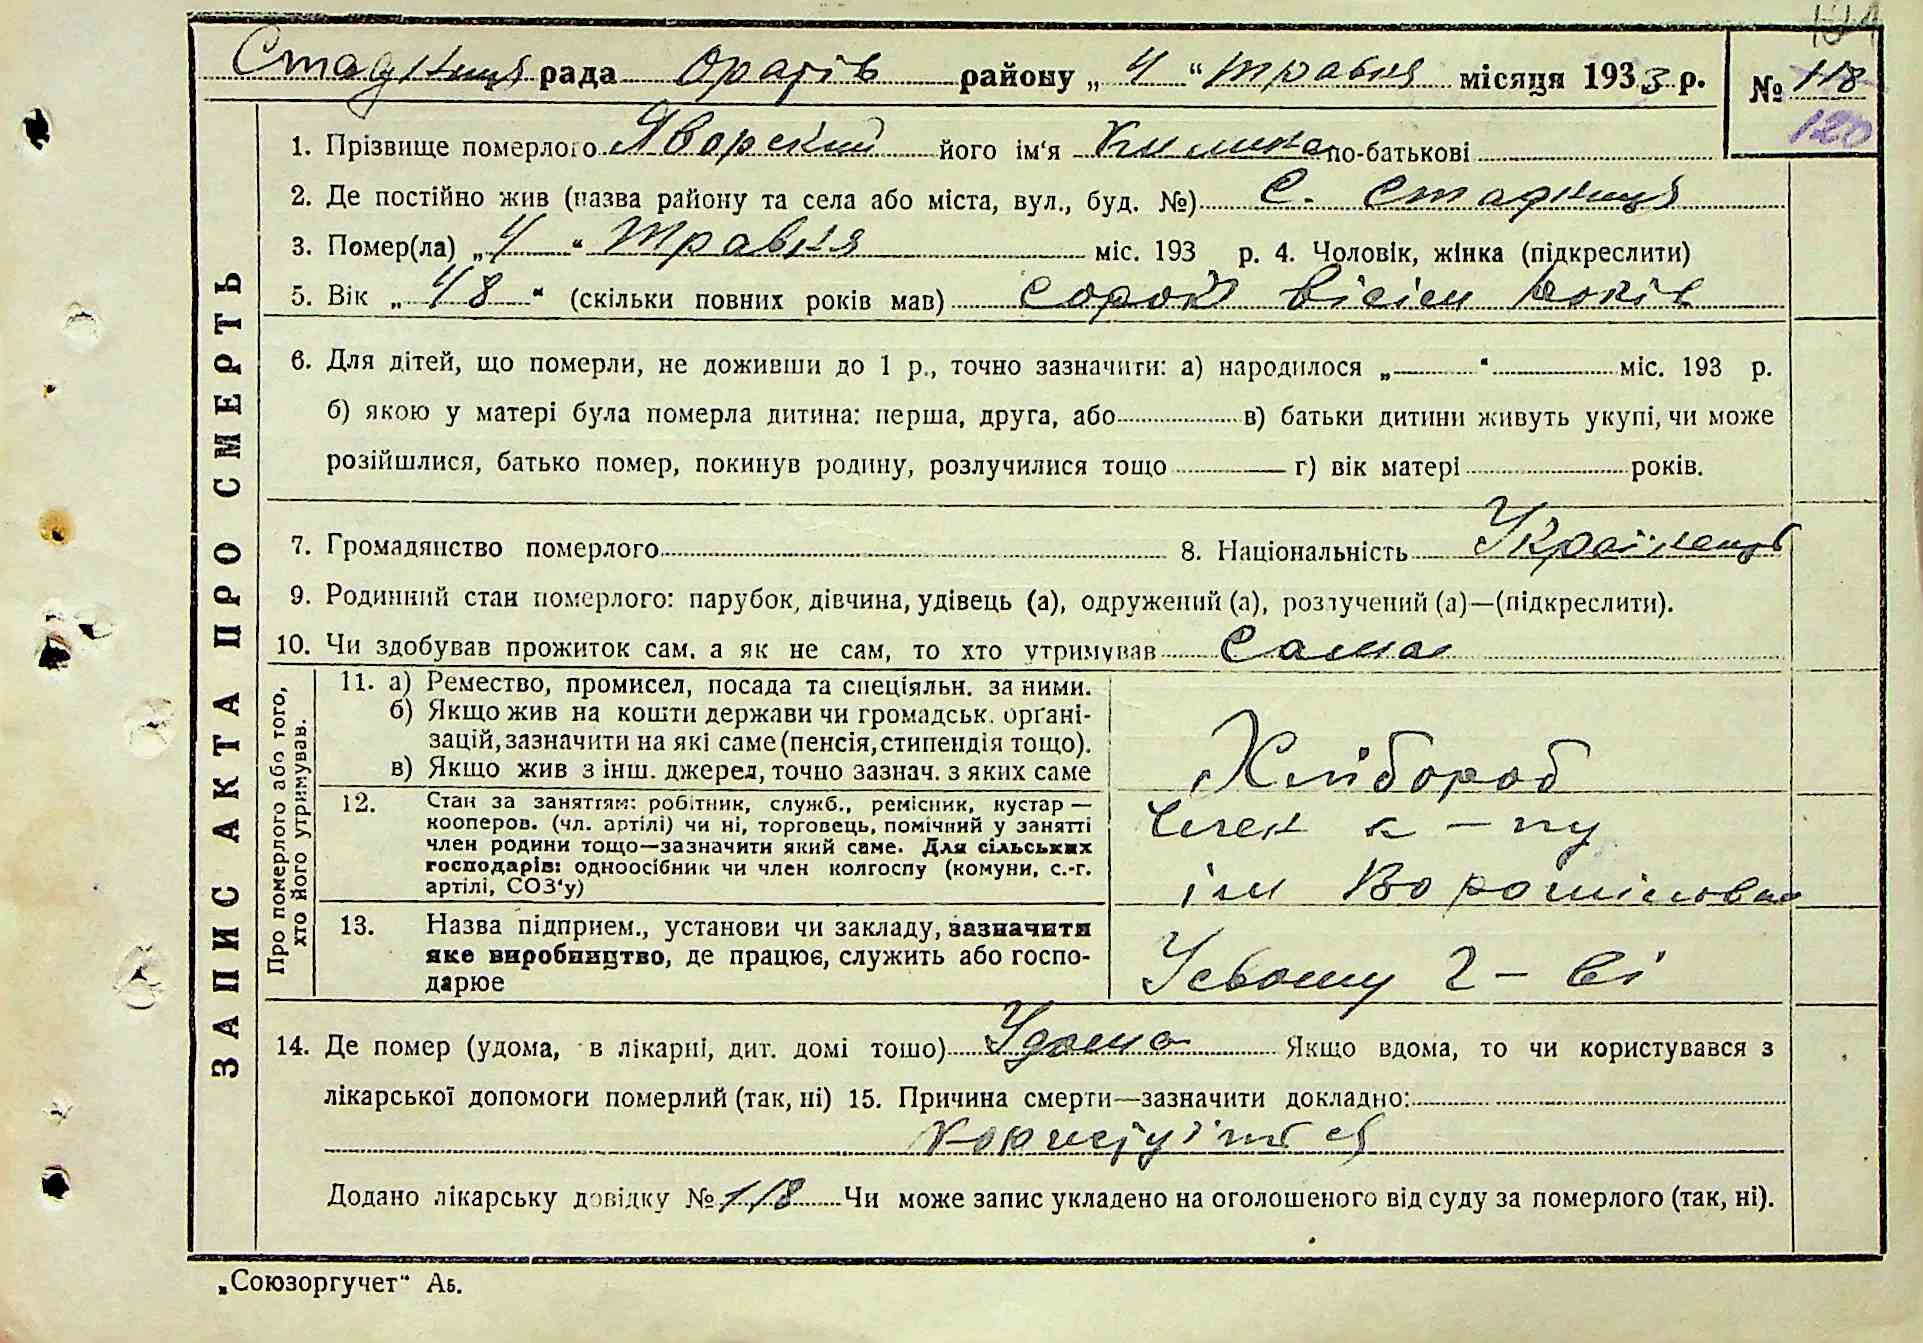 Стадниця рада Оратів району „ 4 “ травня місяця 1933 р.
№ 118
120
ЗАПИС АКТА ПРО СМЕРТЬ
1. Прізвище померлого Яворский його ім‘я Килина по-батькові
2. Де постійно жив (назва району та села або міста, вул., буд. №) с. Стадниця
3. Помер(ла) „ 4 “ травня міс. 193 р. 4. Чоловік, жінка (підкреслити)
5. Вік „ 48 “ (скільки повних років мав) сорок вісім років
6. Для дітей, що померли, не доживши до 1 р., точно зазначити: а) народилося „ “ міс. 193 р.
б) якою у матері була померла дитина: перша, друга, або в) батьки дитини живуть укупі, чи може
розійшлися, батько помер, покинув родину, розлучилися тощо г) вік матері років.
7. Громадянство померлого 8. Національність Українець
9. Родинний стан померлого: парубок, дівчина, удівець (а), одружений (а), розлучений (а)—(підкреслити).
10. Чи здобував прожиток сам, а як не сам, то хто утримував сама
Про померлого або того,
хто його утримував.
11. а) Ремество, промисел, посада та спеціяльн. за ними.
б) Якщо жив на кошти держави чи громадськ. органі-
зацій, зазначити на які саме (пенсія, стипендія тощо).
в) Якщо жив з інш. джерел, точно зазнач. з яких саме
Хлібороб
12. Стан за заняттям: робітник, служб., ремісник, кустар —
кооперов. (чл. артілі) чи ні, торговець, помічний у занятті
член родини тощо—зазначити який саме. Для сільських
господарів: одноосібник чи член колгоспу (комуни, с.-г.
артілі, СОЗ‘у)
Член к-пу
ім Ворошілова
13. Назва підприєм., установи чи закладу, зазначити
яке виробництво, де працює, служить або госпо-
дарює
Усвому г-ві
14. Де помер (удома, в лікарні, дит. домі тощо) Удома Якщо вдома, то чи користувався з
лікарської допомоги померлий (так, ні) 15. Причина смерти—зазначити докладно:
Додано лікарську довідку № 118 Чи може запис укладено на оголошеного від суду за померлого (так, ні).
„Союзоргучет“ Аб.